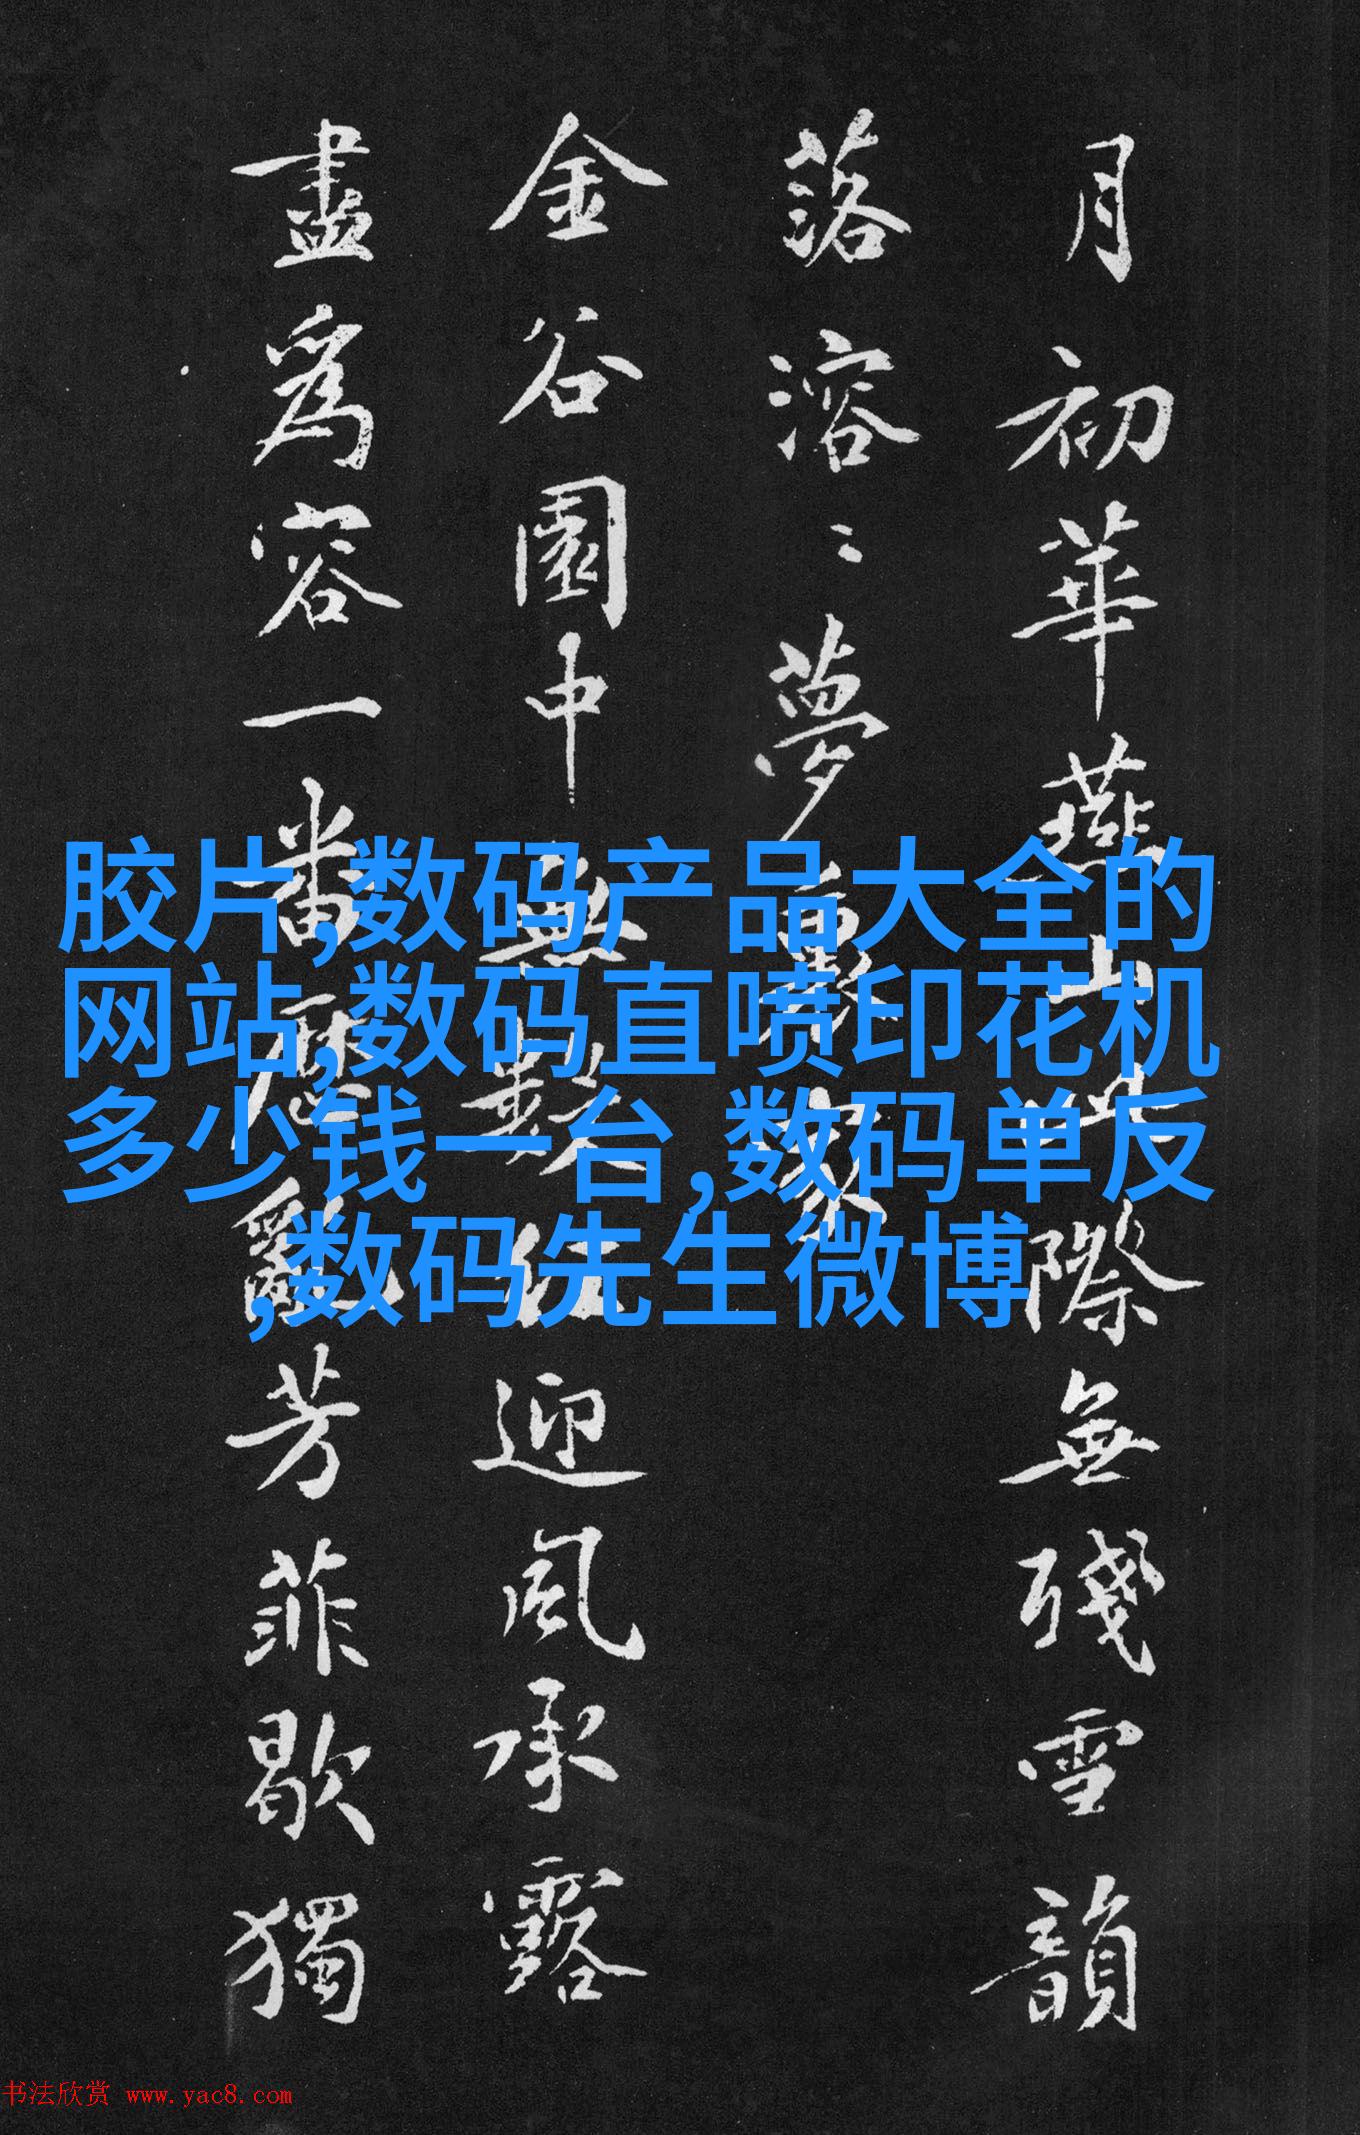 月初華燕山此際無殘雪韻
落溶〻夢裏家
金谷園中無數迎風承露
盡為容一番歷亂芳菲歇獨
胶片,数码产品大全的
网站,数码直喷印花机
多少钱一台,数码单反
,数码先生微博
书法欣赏 www.yac8.com